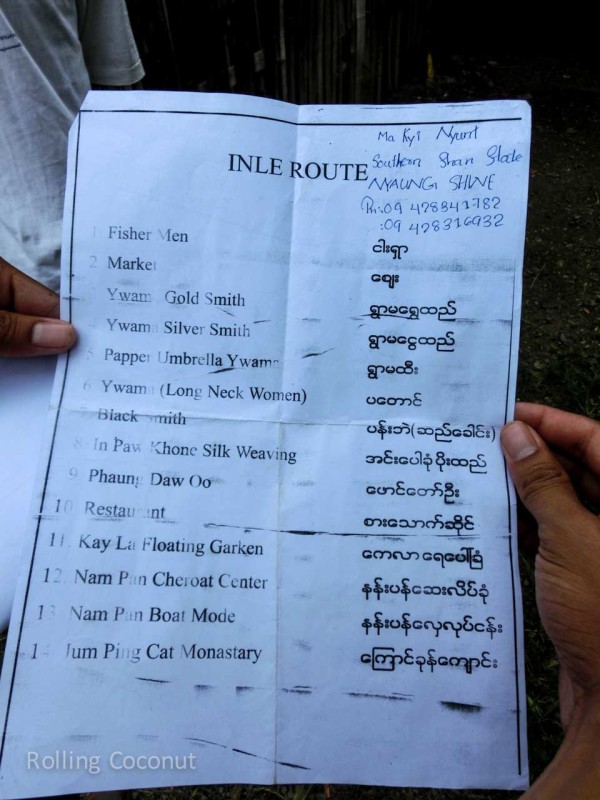 Ma Kyi Nyunt
Southern Shan State
NYAUNG SHWE
Ph:09 428341782
:09 428316932
INLE ROUTE
1 Fisher Men ငါးရှာ
2 Market ဈေး
Ywama Gold Smith ရွာမရွှေထည်
4 Ywama Silver Smith ရွာမငွေထည်
5 Papper Umbrella Ywama ရွာမထီး
6 Ywama (Long Neck Women) ပတောင်
7 Black Smith ပန်းဘဲ(ဆည်ခေါင်း)
8. In Paw Khone Silk Weaving အင်းပေါခုံပိုးထည်
9 Phaung Daw Oo ဖောင်တော်ဦး
10 Restaurant စားသောက်ဆိုင်
11. Kay La Floating Garken ကေလာရေပေါ်ခြံ
12. Nam Pan Cheroat Center နန်းပန်ဆေးလိပ်ခုံ
13 Nam Pan Boat Mode နန်းပန်လှေလုပ်ငန်း
14 Jum Ping Cat Monastary ကြောင်ခုန်ကျောင်း
Rolling Coconut